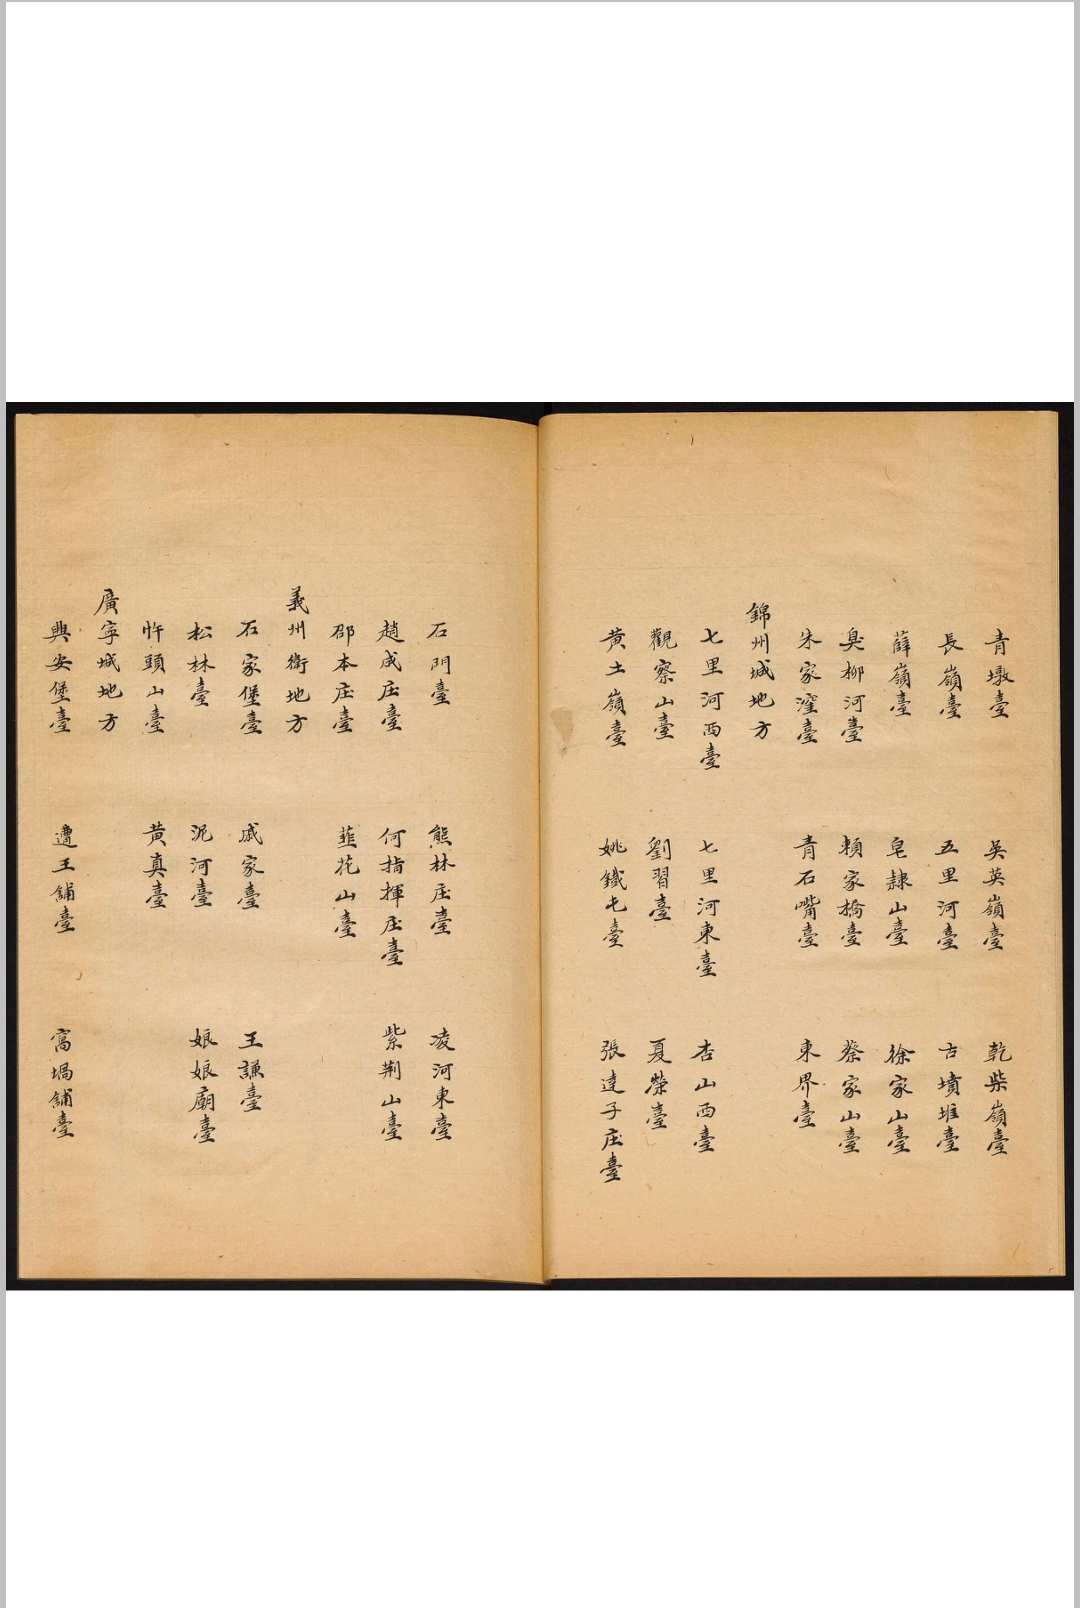 青墩臺 吳英嶺臺 乾柴嶺臺
長嶺臺 五里河臺 古墳堆臺
薛嶺臺 皂隸山臺 徐家山臺
臭柳河臺 賴家橋臺 蔡家山臺
朱家窪臺 青石嘴臺 東界臺
錦州城地方
七里河西臺 七里河東臺 杏山西臺
觀察山臺 劉習臺 夏榮臺
黃土嶺臺 姚鐵屯臺 張達子庄臺
石門臺 熊林庄臺 凌河東臺
趙成庄臺 何指揮庄臺 紫荆山臺
邵本庄臺 韮花山臺
義州衛地方
石家堡臺 戚家臺 王謙臺
松林臺 泥河臺 娘娘廟臺
頭山臺 黃真臺
廣寧城地方
興安堡臺 遭王舖臺 窩堝舖臺